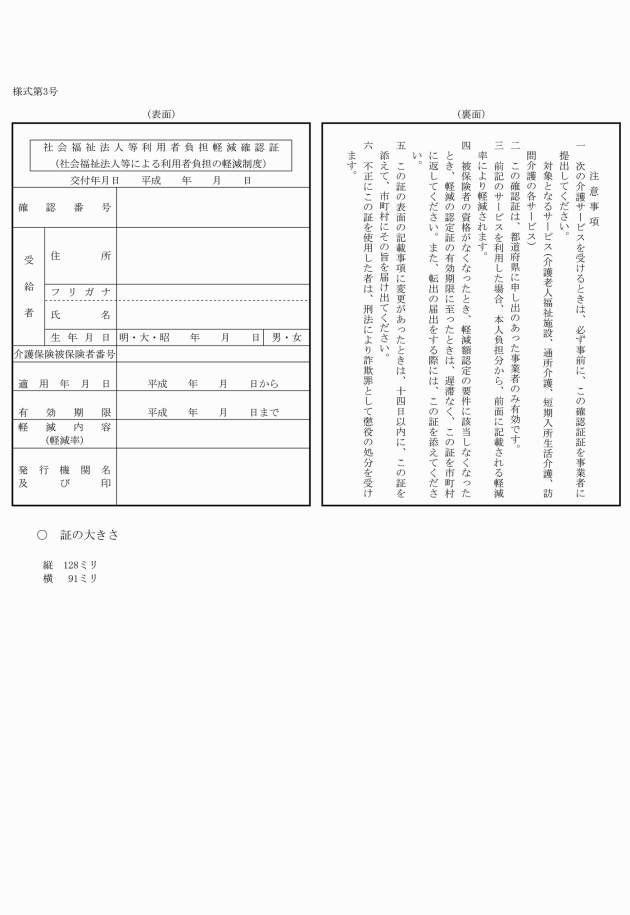 様式第3号
（表面）
社会福祉法人等利用者負担軽減確認証
（社会福祉法人等による利用者負担の軽減制度）
交付年月日　平成　年　月　日
確認番号
受給者
住所
フリガナ
氏名
生年月日　明・大・昭　年　月　日　男・女
介護保険被保険者番号
適用年月日　平成　年　月　日から
有効期限　平成　年　月　日まで
軽減内容
（軽減率）
発行機関名
及び印
（裏面）
注意事項
一　次の介護サービスを受けるときは、必ず事前に、この確認証証を事業者に
提出してください。
対象となるサービス（介護老人福祉施設、通所介護、短期入所生活介護、訪
問介護の各サービス）
二　この確認証は、都道府県に申し出のあった事業者のみ有効です。
三　前記のサービスを利用した場合、本人負担分から、前面に記載される軽減
率により軽減されます。
四　被保険者の資格がなくなったとき、軽減額認定の要件に該当しなくなった
とき、軽減の認定証の有効期限に至ったときは、遅滞なく、この証を市町村
に返してください。また、転出の届出をする際には、この証を添えてくださ
い。
五　この証の表面の記載事項に変更があったときは、十四日以内に、この証を
添えて、市町村にその旨を届け出てください。
六　不正にこの証を使用した者は、刑法により詐欺罪として懲役の処分を受け
ます。
〇　証の大きさ
縦　128ミリ
横　91ミリ